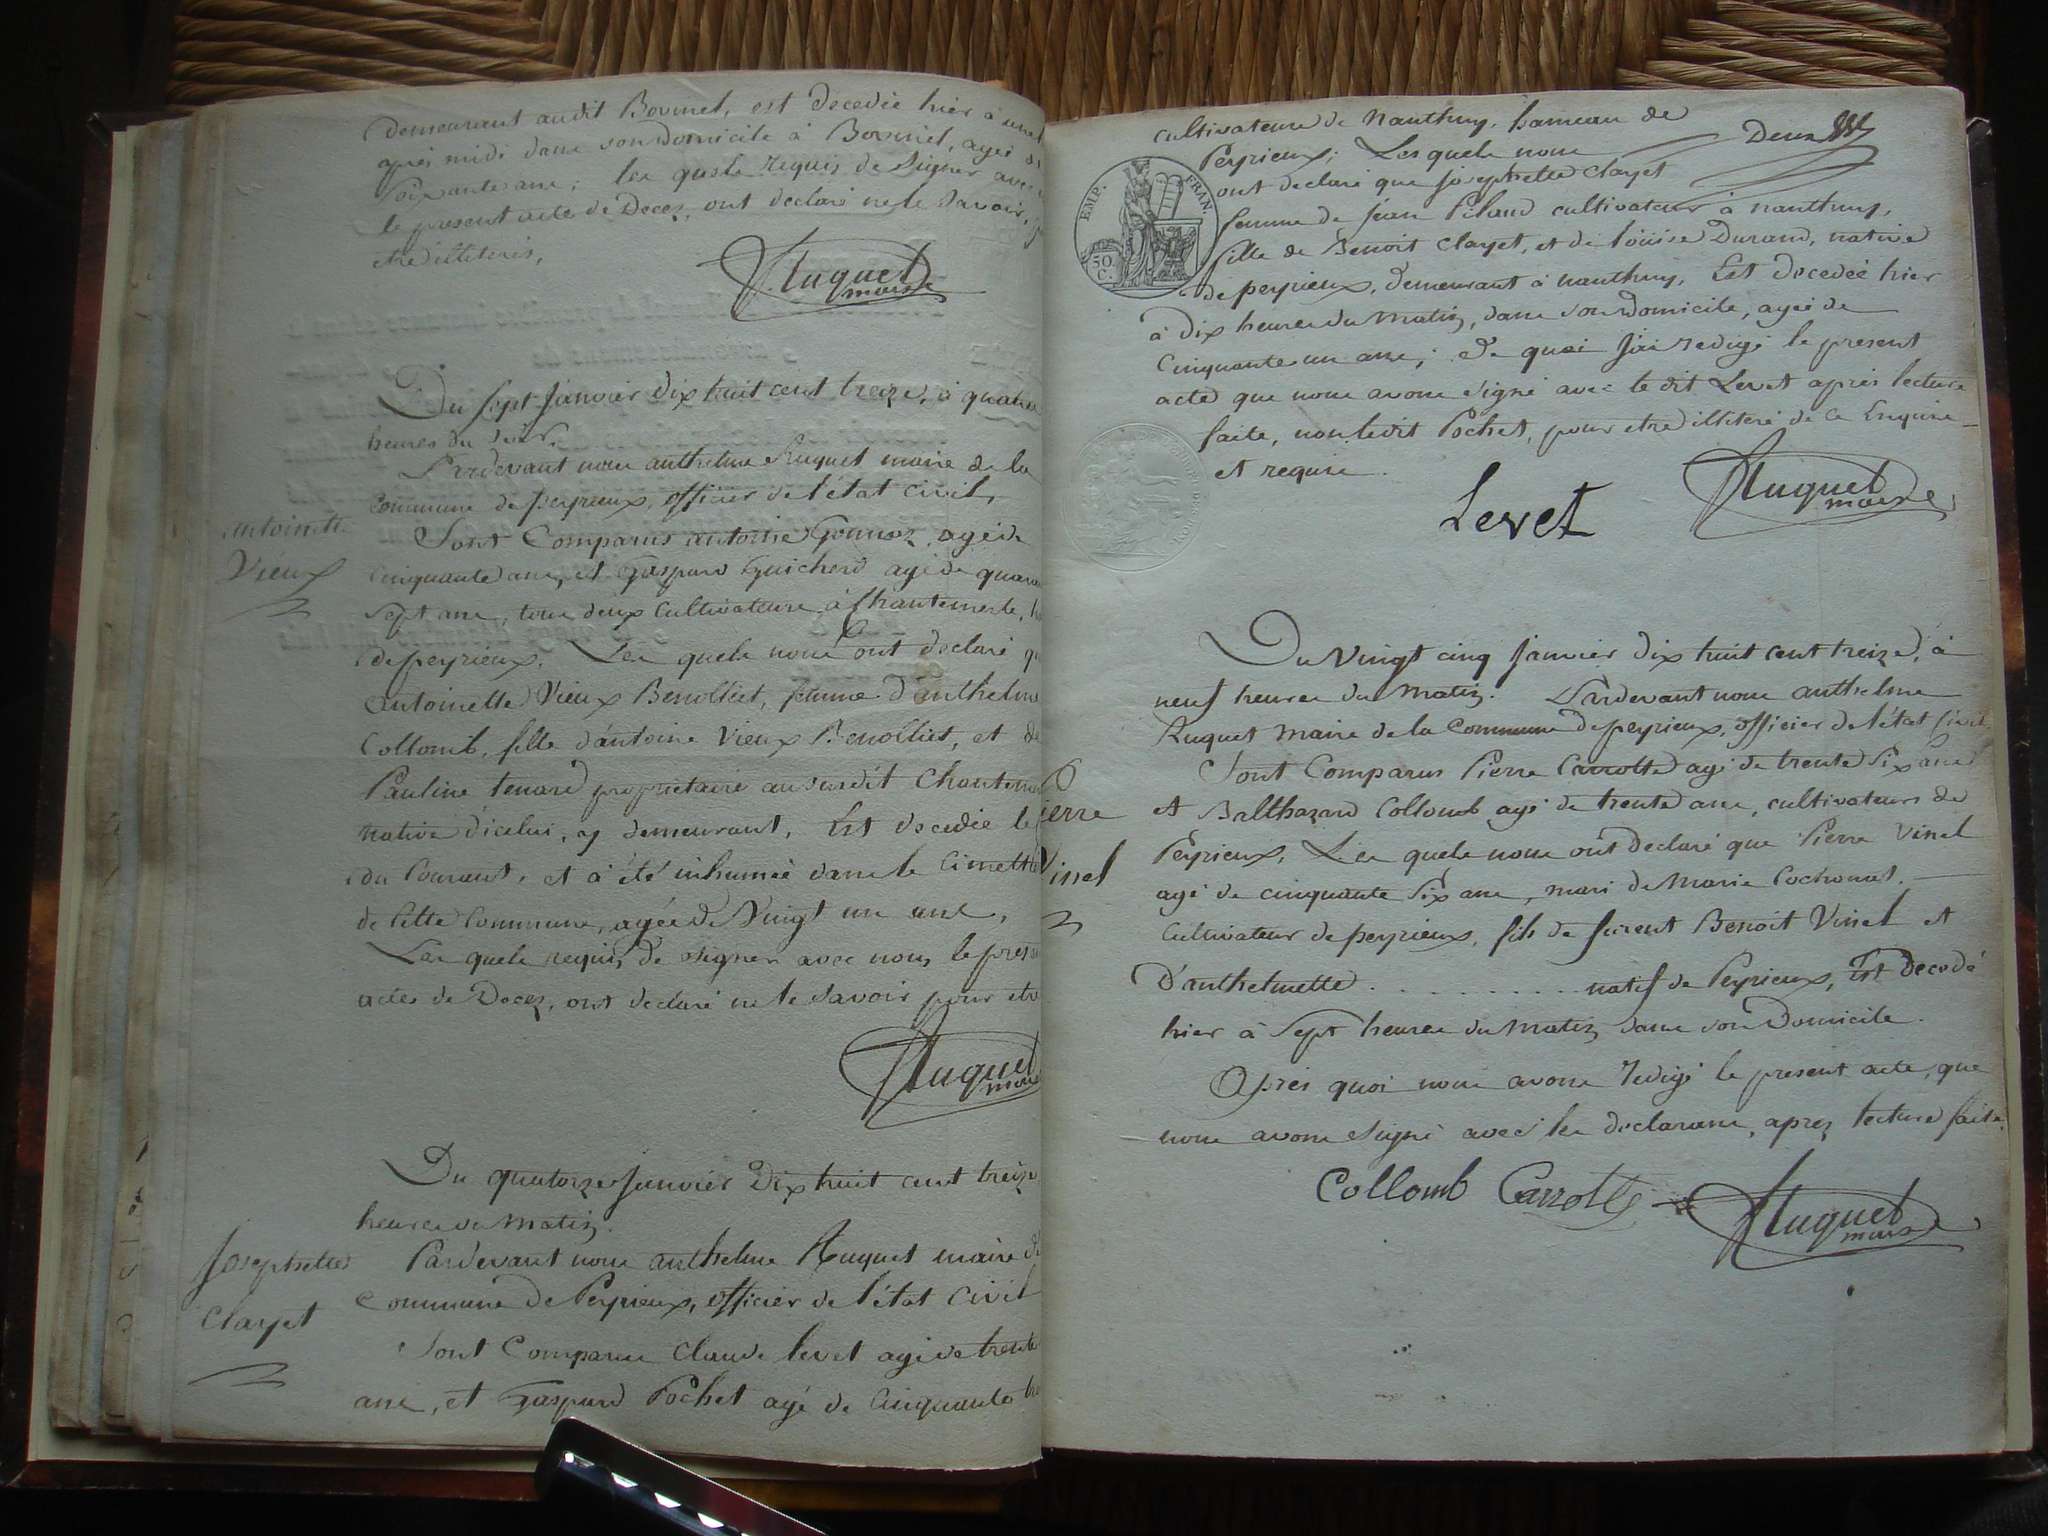 demeurant audit Bovinel, est decedée hier à une
après midi dans son Domicile à Bovinel, agée de
soixante ans; les quels requis de signer avec
le present acte de Decez, ont declaré ne le savoir,
etre illiteres,
Ruquet
maire
Du sept Janvier dix huit cent treize, à quatre
heures du soir.
Pardevant nous anthelme Ruquet maire de la
Commune de peyrieux, officier de l'état Civil,
Antoinette
Vieux
Sont Comparus antoine Gonnoz, agé de
Cinquante ans, et Gaspard Guicherd agé de quara
sept ans, tous deux Cultivateurs à Chantemerle,
de peyrieux. Les quels nous ont declaré
Antoinette Vieux Benollict, femme d'anthelme
Collomb, fille d'antoine Vieux Benollict, et de
Pauline tenard proprietaire au susdit Chantem
native d'icelui, y demeurant, Est decedée le
du Courant, et a été inhumée dans le Cimett
de Cette Commune, agée de Vingt un ans,
Les quels requis de signer avec nous le pres
acte de Decez, ont declaré ne le savoir pour etre
Ruquet
maire
Du quatorze Janvier Dix huit cent treize
heures du matin.
Josephette
Clayet
Pardevant nous anthelme Ruquet maire de
Commune de Peyrieux, officier de l'état Civil
Sont Comparus Claude levet agé de trente
ans, et Gaspard Pochet agé de Cinquante
cultivateurs de Nanthuy, hameau de
Deux
Peyrieux; Les quels nous
EMP. FRAN.
50 C.
ont declaré que Josephette Clayet
femme de Jean Pilaud cultivateur à nanthuy,
fille de Benoit Clayet, et de loüise Durand, native
de peyrieux, demeurant à nanthuy, Est decedée hier
à dix heures du matin, dans son Domicile, agée de
Cinquante un ans; de quoi J'ai redigé le present
acte que nous avons signé avec le dit Levet après lecture
faite, non ledit Pochet, pour etre illiteré de ce Enquis
et requis.
Levet
Ruquet
maire
Du Vingt cinq Janvier dix huit cent treize, à
neuf heures du matin. Pardevant nous anthelme
Ruquet maire de la Commune de peyrieux, officier de l'état Civil
Pierre
Vinel
Sont Comparus Pierre Carrotte agé de trente six ans
et Balthazard Collomb agé de trente ans, cultivateurs de
Peyrieux, Les quels nous ont declaré que Pierre Vinel
agé de cinquante six ans, mari de Marie Cochonat,
Cultivateur de peyrieux, fils de furent Benoit Vinel et
D'anthelmette . . . . . . . . . natif de Peyrieux, Est decedé
hier à Sept heures du matin dans son Domicile.
Après quoi nous avons redigé le present acte, que
nous avons signé avec les declarans, aprez lecture faite.
Collomb Carrotte
Ruquet
maire